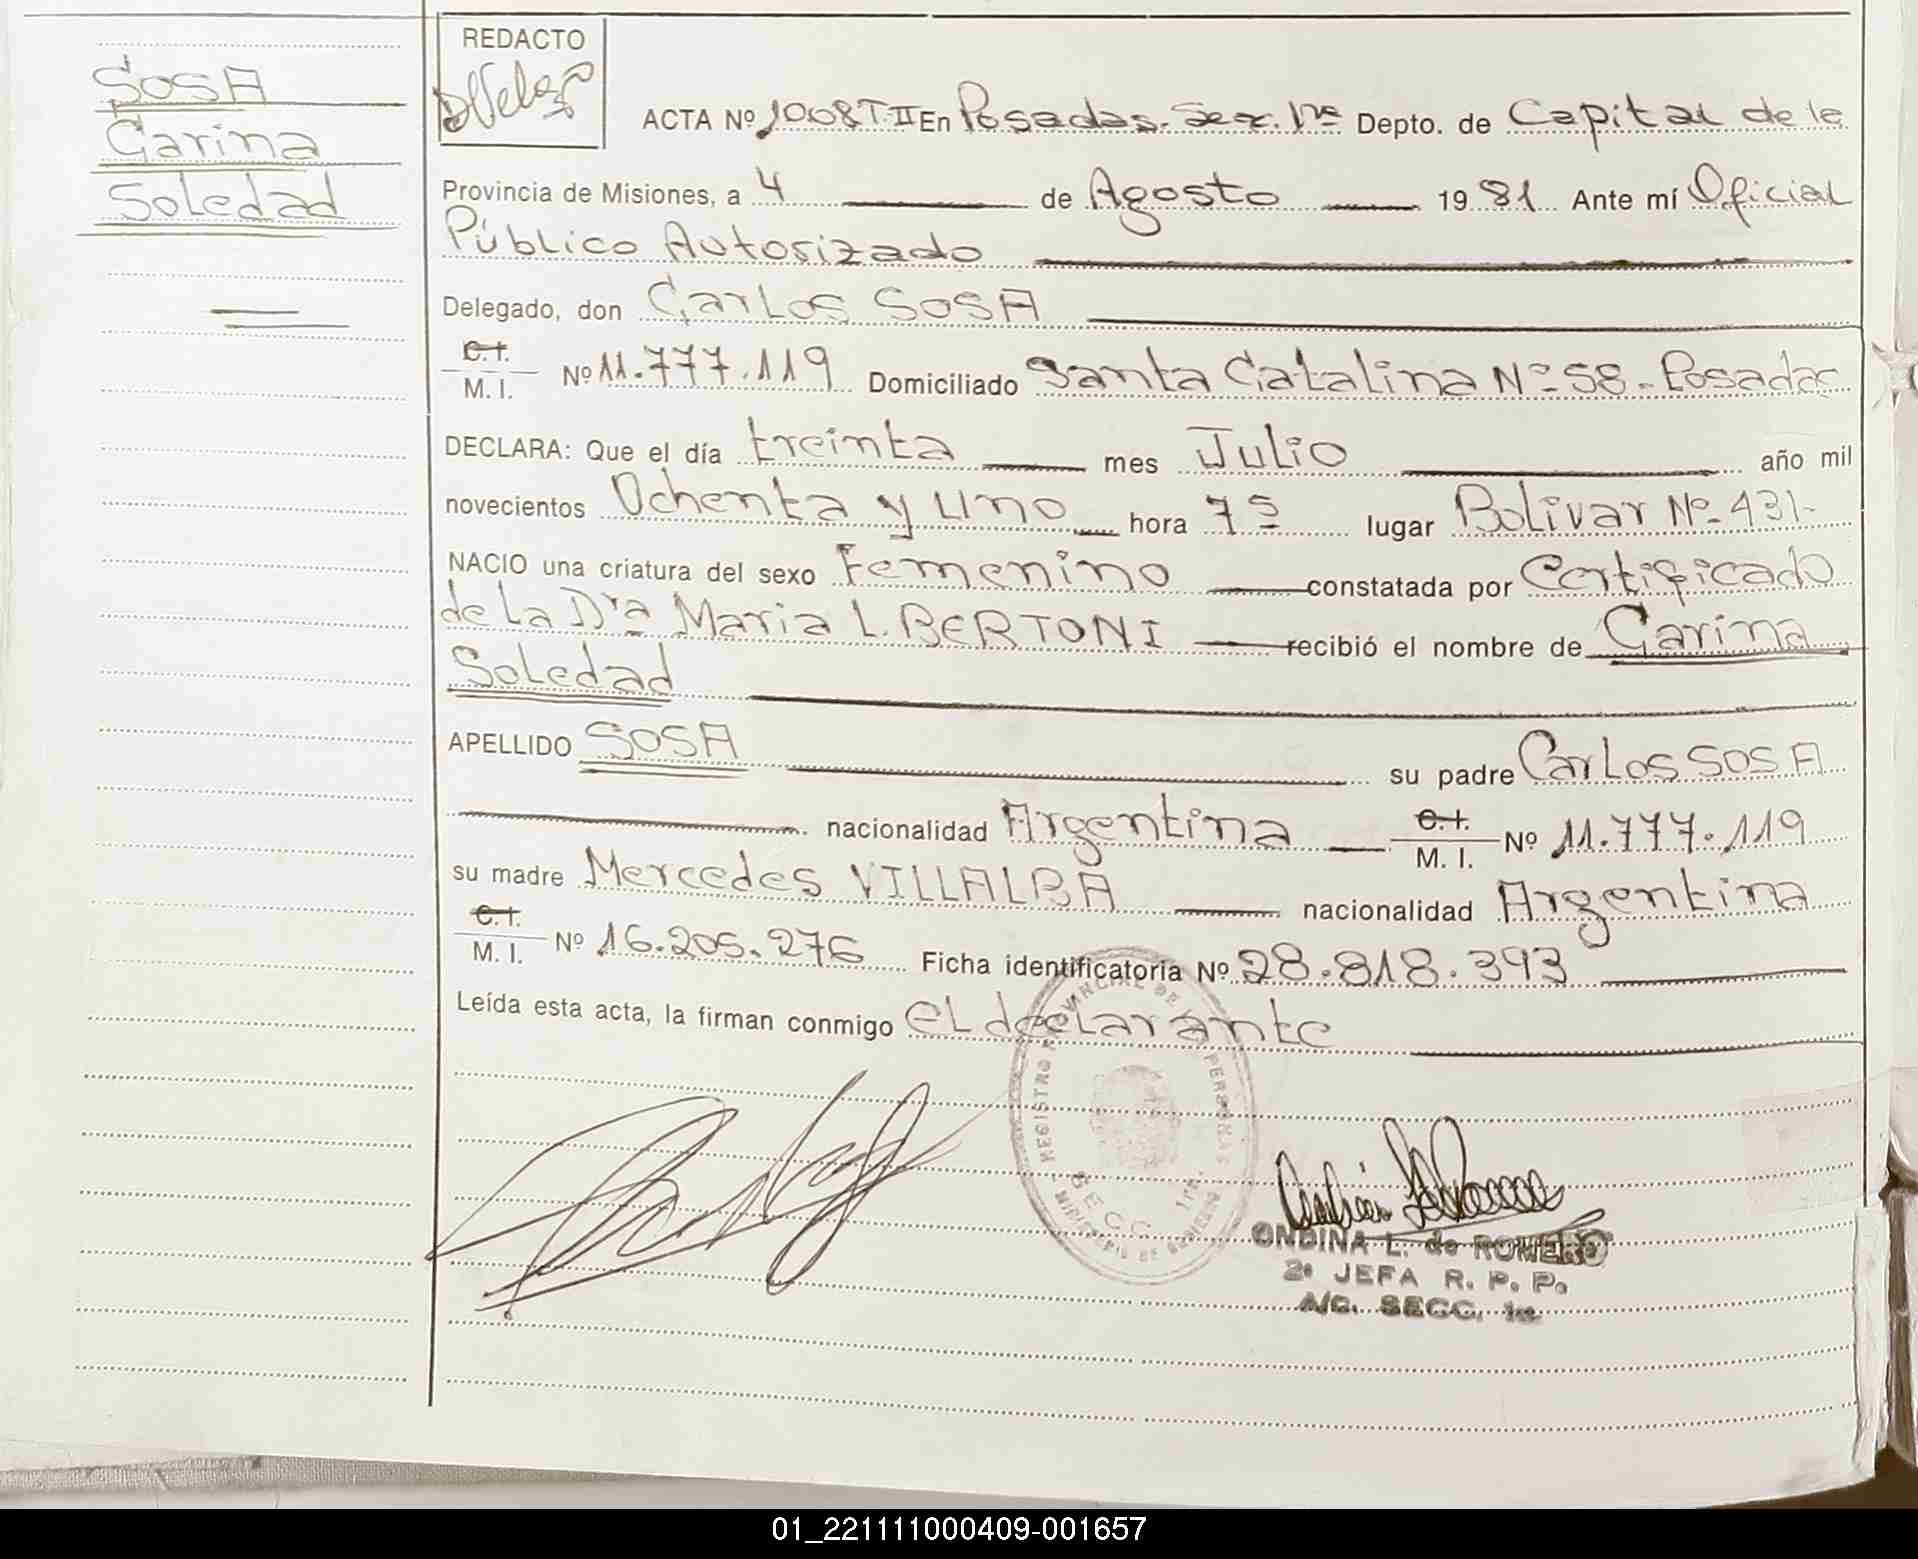 SOSA
Carina
Soledad
REDACTO
ACTA Nº 1008 T. II En Posadas. Secc. 1ra Depto. de Capital de la
Provincia de Misiones, a 4 de Agosto 1981 Ante mí Oficial
Público Autorizado
Delegado, don Carlos SOSA
C.I.
M. I. Nº 11.777.119 Domiciliado Santa Catalina Nº 58 - Posadas
DECLARA: Que el día treinta mes Julio año mil
novecientos Ochenta y uno hora 7 lugar Bolivar Nº 431-
NACIO una criatura del sexo Femenino constatada por Certificado
de la Dra Maria L. BERTONI recibió el nombre de Carina
Soledad
APELLIDO SOSA su padre Carlos SOSA
nacionalidad Argentina C.I.
M. I. Nº 11.777.119
su madre Mercedes VILLALBA nacionalidad Argentina
C.I.
M. I. Nº 16.205.276 Ficha identificatoria Nº 28.818.393
Leída esta acta, la firman conmigo el declarante
REGISTRO PROVINCIAL DE PERSONAS
SECC. 1ra.
MINISTERIO DE GOBIERNO
ONDINA L. de ROMERO
2ª JEFA R. P. P.
A/C. SECC. 1ra
01_221111000409-001657